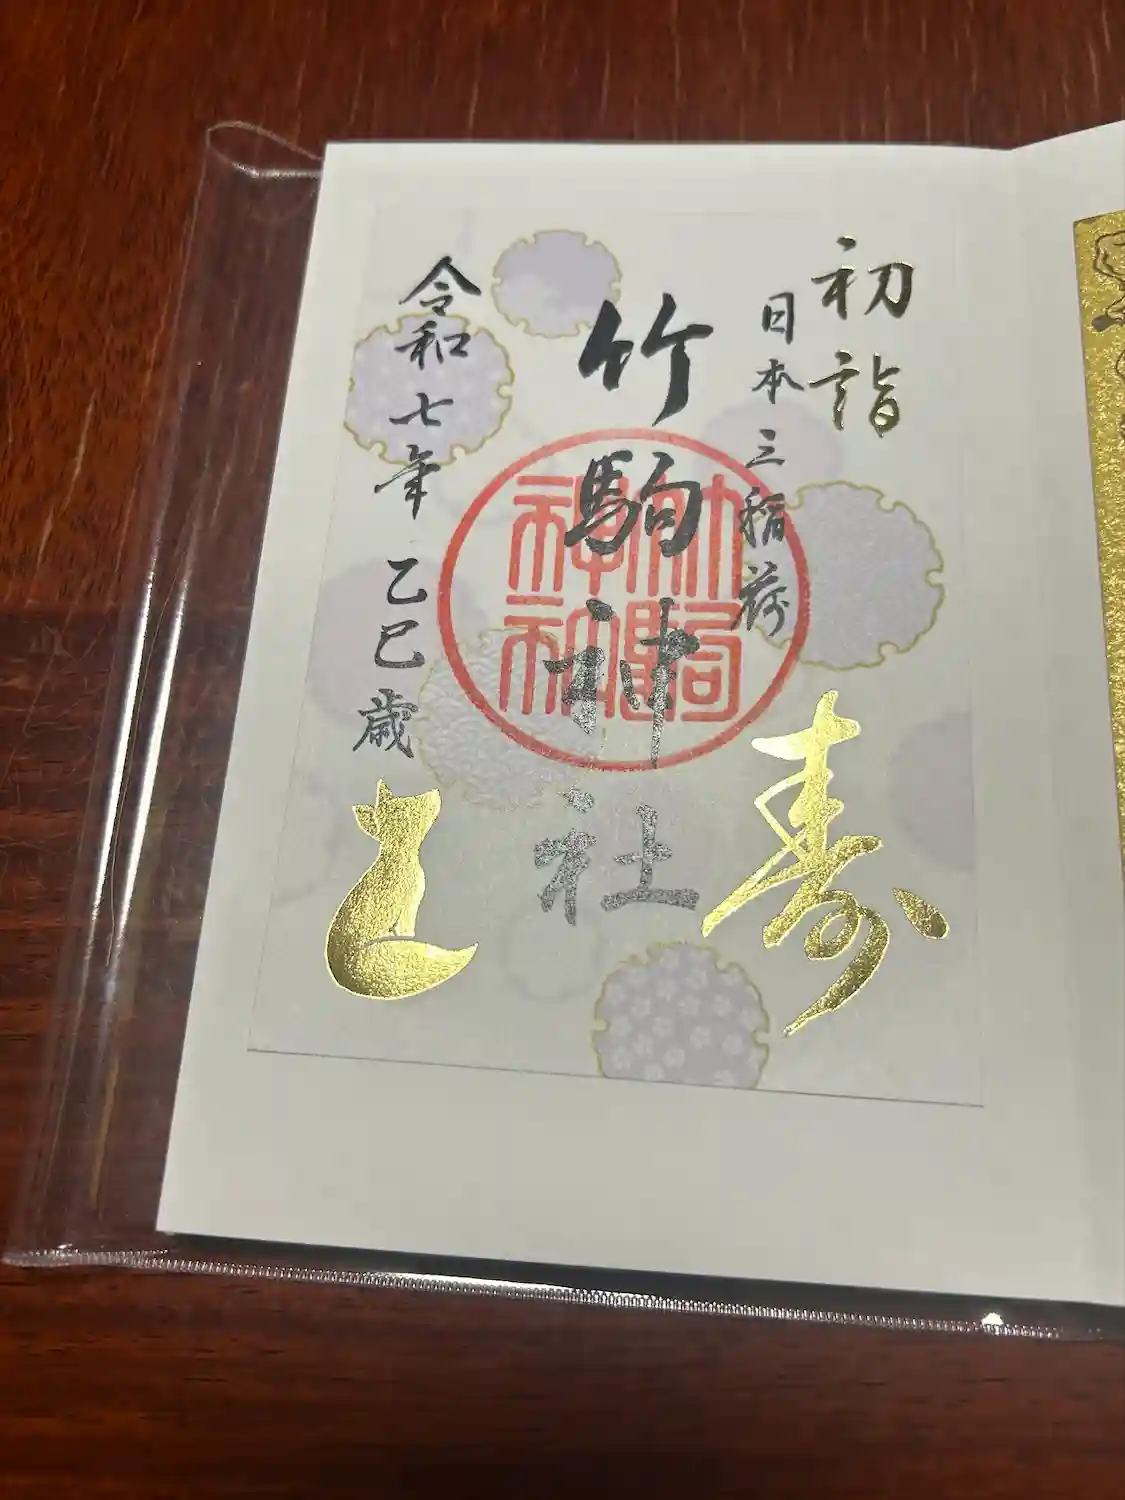 初詣
日本三稲荷
竹駒神社
竹駒神社
令和七年 乙巳歳
寿